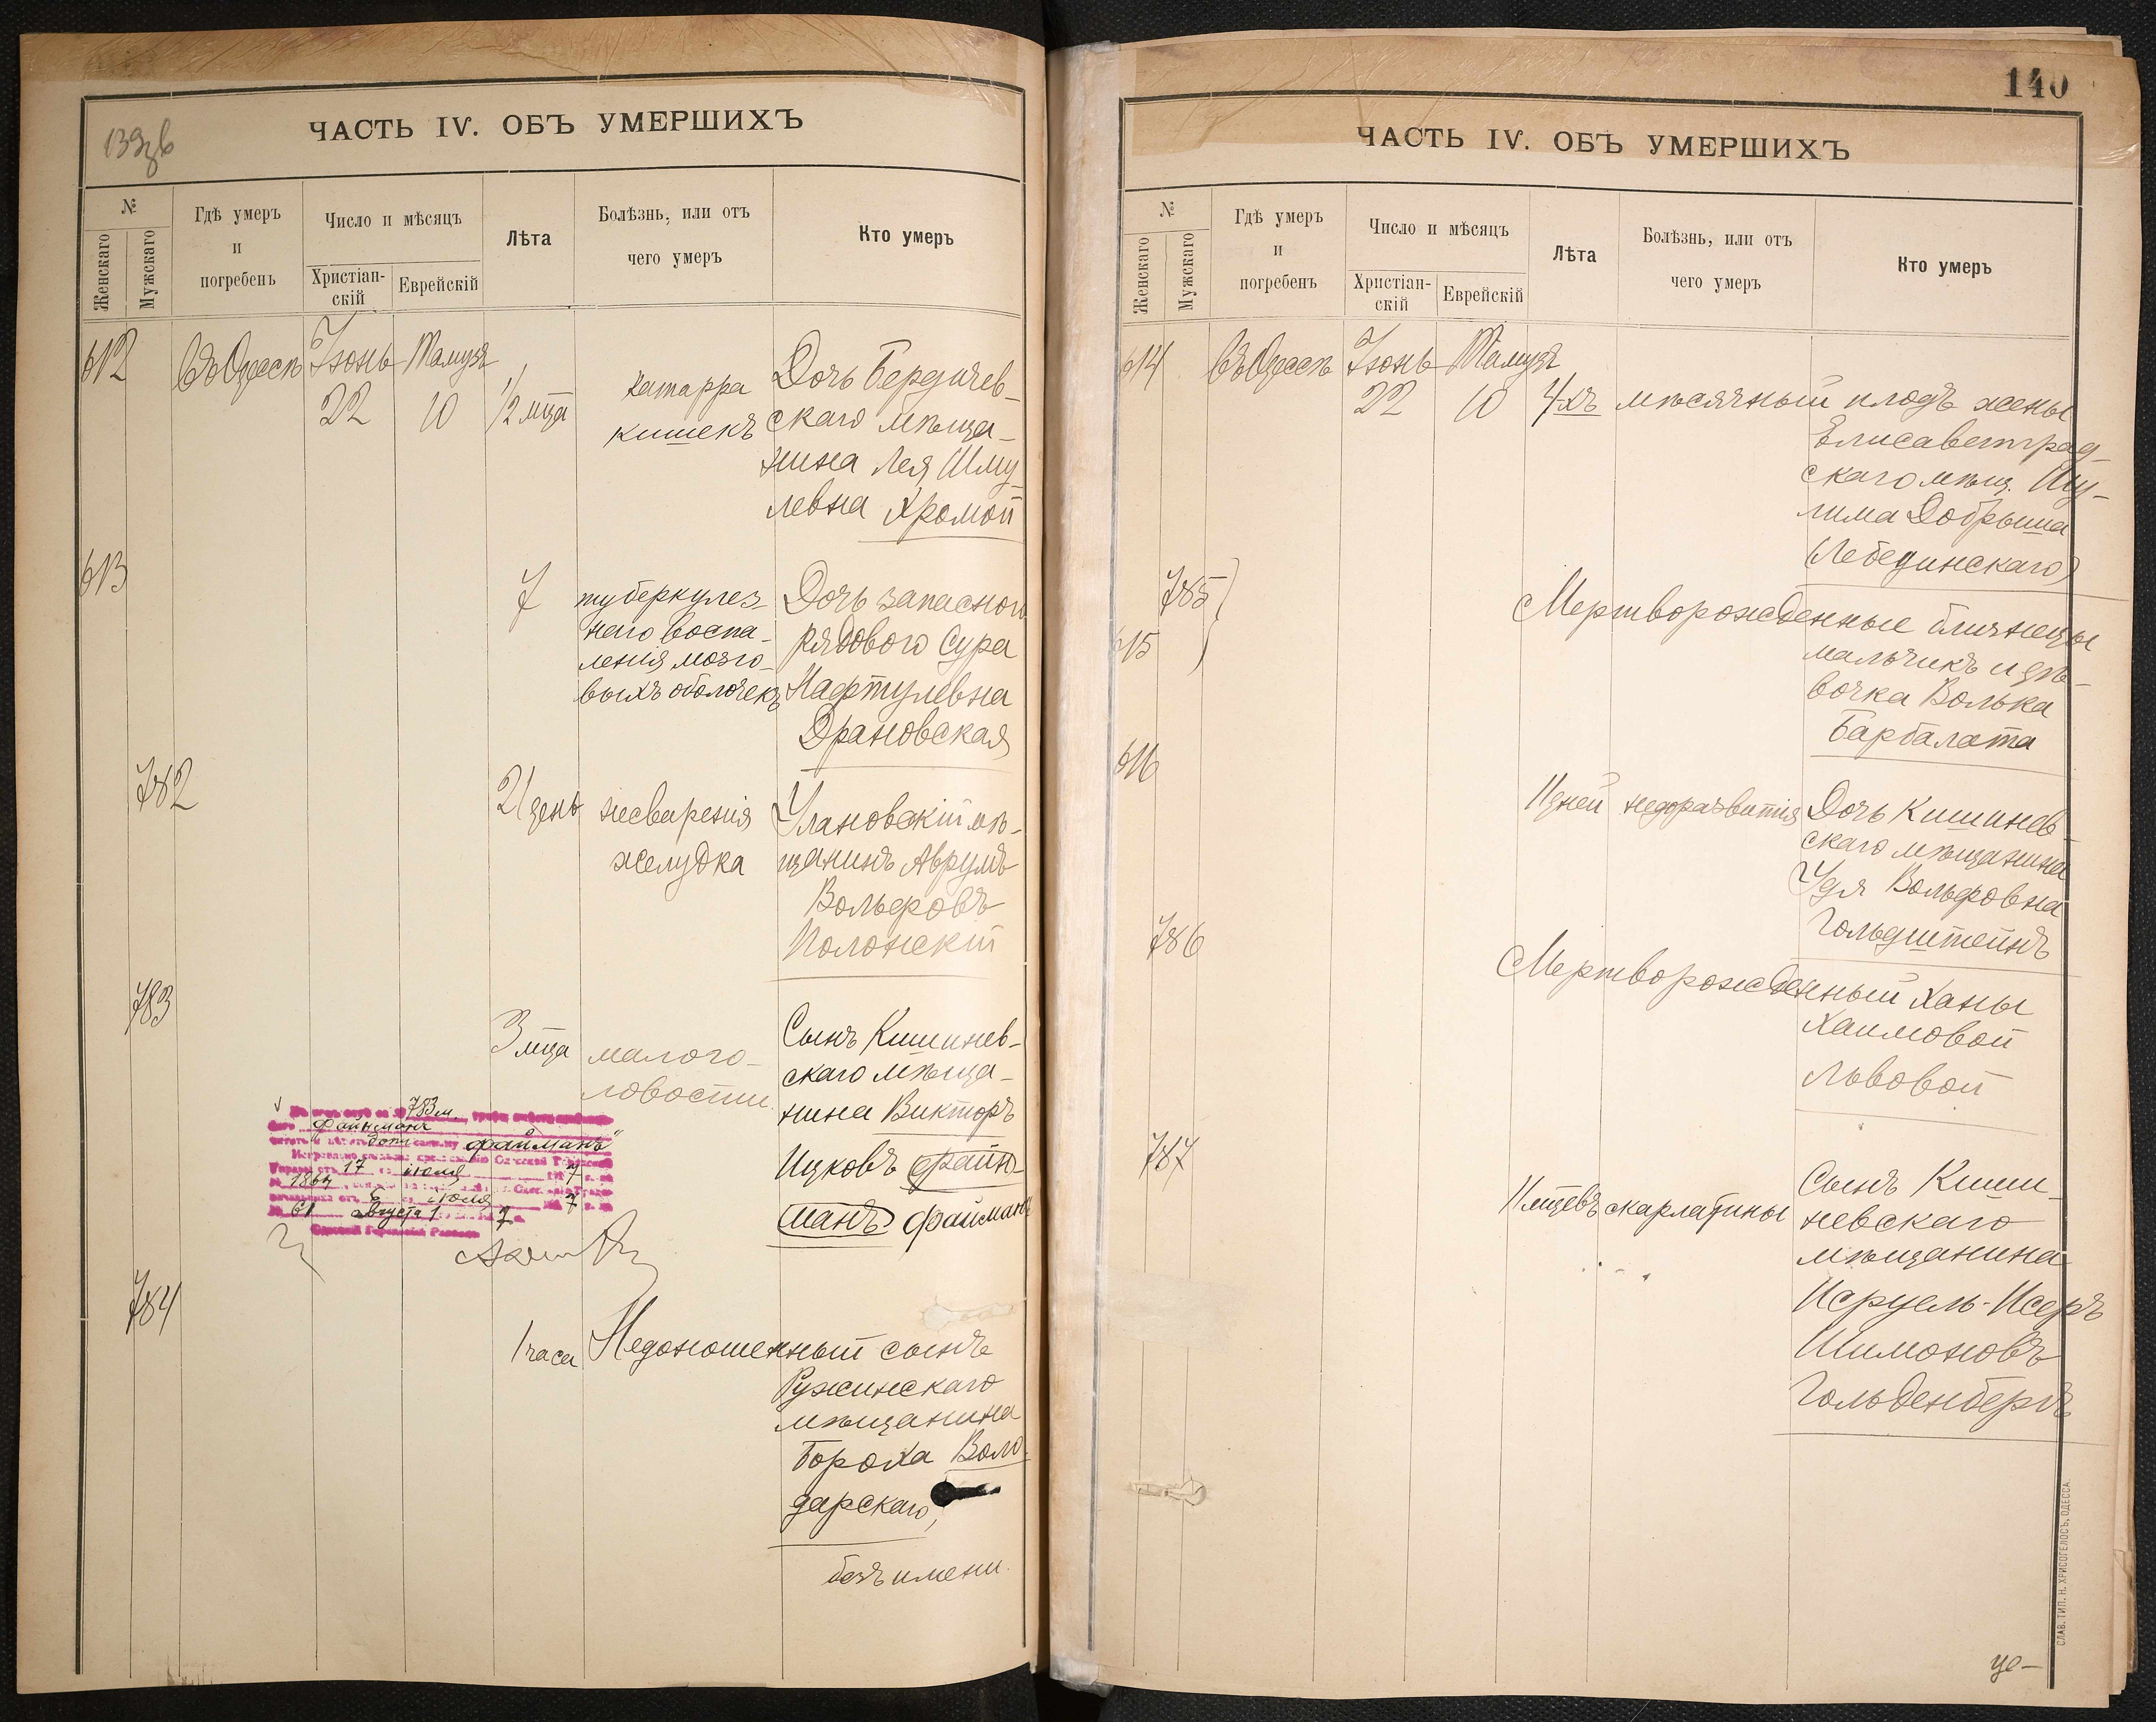 139 об
ЧАСТЬ IV. ОБЪ УМЕРШИХЪ
№
Женскаго
Мужскаго
Гдѣ умеръ
и
погребенъ
Число и мѣсяцъ
Христіан-
скій
Еврейскій
Лѣта
Болѣзнь, или отъ
чего умеръ
Кто умеръ
612
Въ Одессѣ
Іюнь
22
Тамузъ
10
1/2 мѣца
катарра
кишекъ
Дочь Бердичев-
скаго мѣща-
нина Лея Шму-
левна Хромой
613
7
туберкулез-
наго воспа-
ленія мозго-
выхъ оболочекъ
Дочь запасного
рядового Сура
Нафтулевна
Драновская
782
21 день
несваренія
желудка
Улановскій мѣ-
щанинъ Аврумъ
Вольфовъ
Полонскій
783
3 мѣца
малого-
ловости.
Сынъ Кишинев-
скаго мѣща-
нина Викторъ
Ицковъ Файн-
манъ Файманъ
783 м.
Файнманъ
"Файманъ"
17 іюля 7
1867
6 іюля 7
61 августа 1 7
784
1 часа
Недоношенный сынъ
Ружинскаго
мѣщанина
Бороха Воло-
дарскаго,
безъ имени.
140
ЧАСТЬ IV. ОБЪ УМЕРШИХЪ
№
Женскаго
Мужскаго
Гдѣ умеръ
и
погребенъ
Число и мѣсяцъ
Христіан-
скій
Еврейскій
Лѣта
Болѣзнь, или отъ
чего умеръ
Кто умеръ
614
Въ Одессѣ
Іюнь
22
Тамузъ
10
4-хъ мѣсячный плодъ жены
Елисаветград-
скаго мѣщ. Шу-
лима Добрыша
(Лебединскаго)
785
615
Мертворожденные близнецы
мальчикъ и дѣ-
вочка Волька
Барбалата
616
11 дней
недоразвитія
Дочь Кишинев-
скаго мѣщанина
Удя Вольфовна
Гольдштейнъ
786
Мертворожденный Ханы
Хаимовой
Львовой
787
11 мѣцевъ
скарлатины
Сынъ Киши-
невскаго
мѣщанина
Исруель-Исеръ
Шимоновъ
Гольденбергъ
СЛАВ. ТИП. Н. ХРИСОГЕЛОСЪ, ОДЕССА.